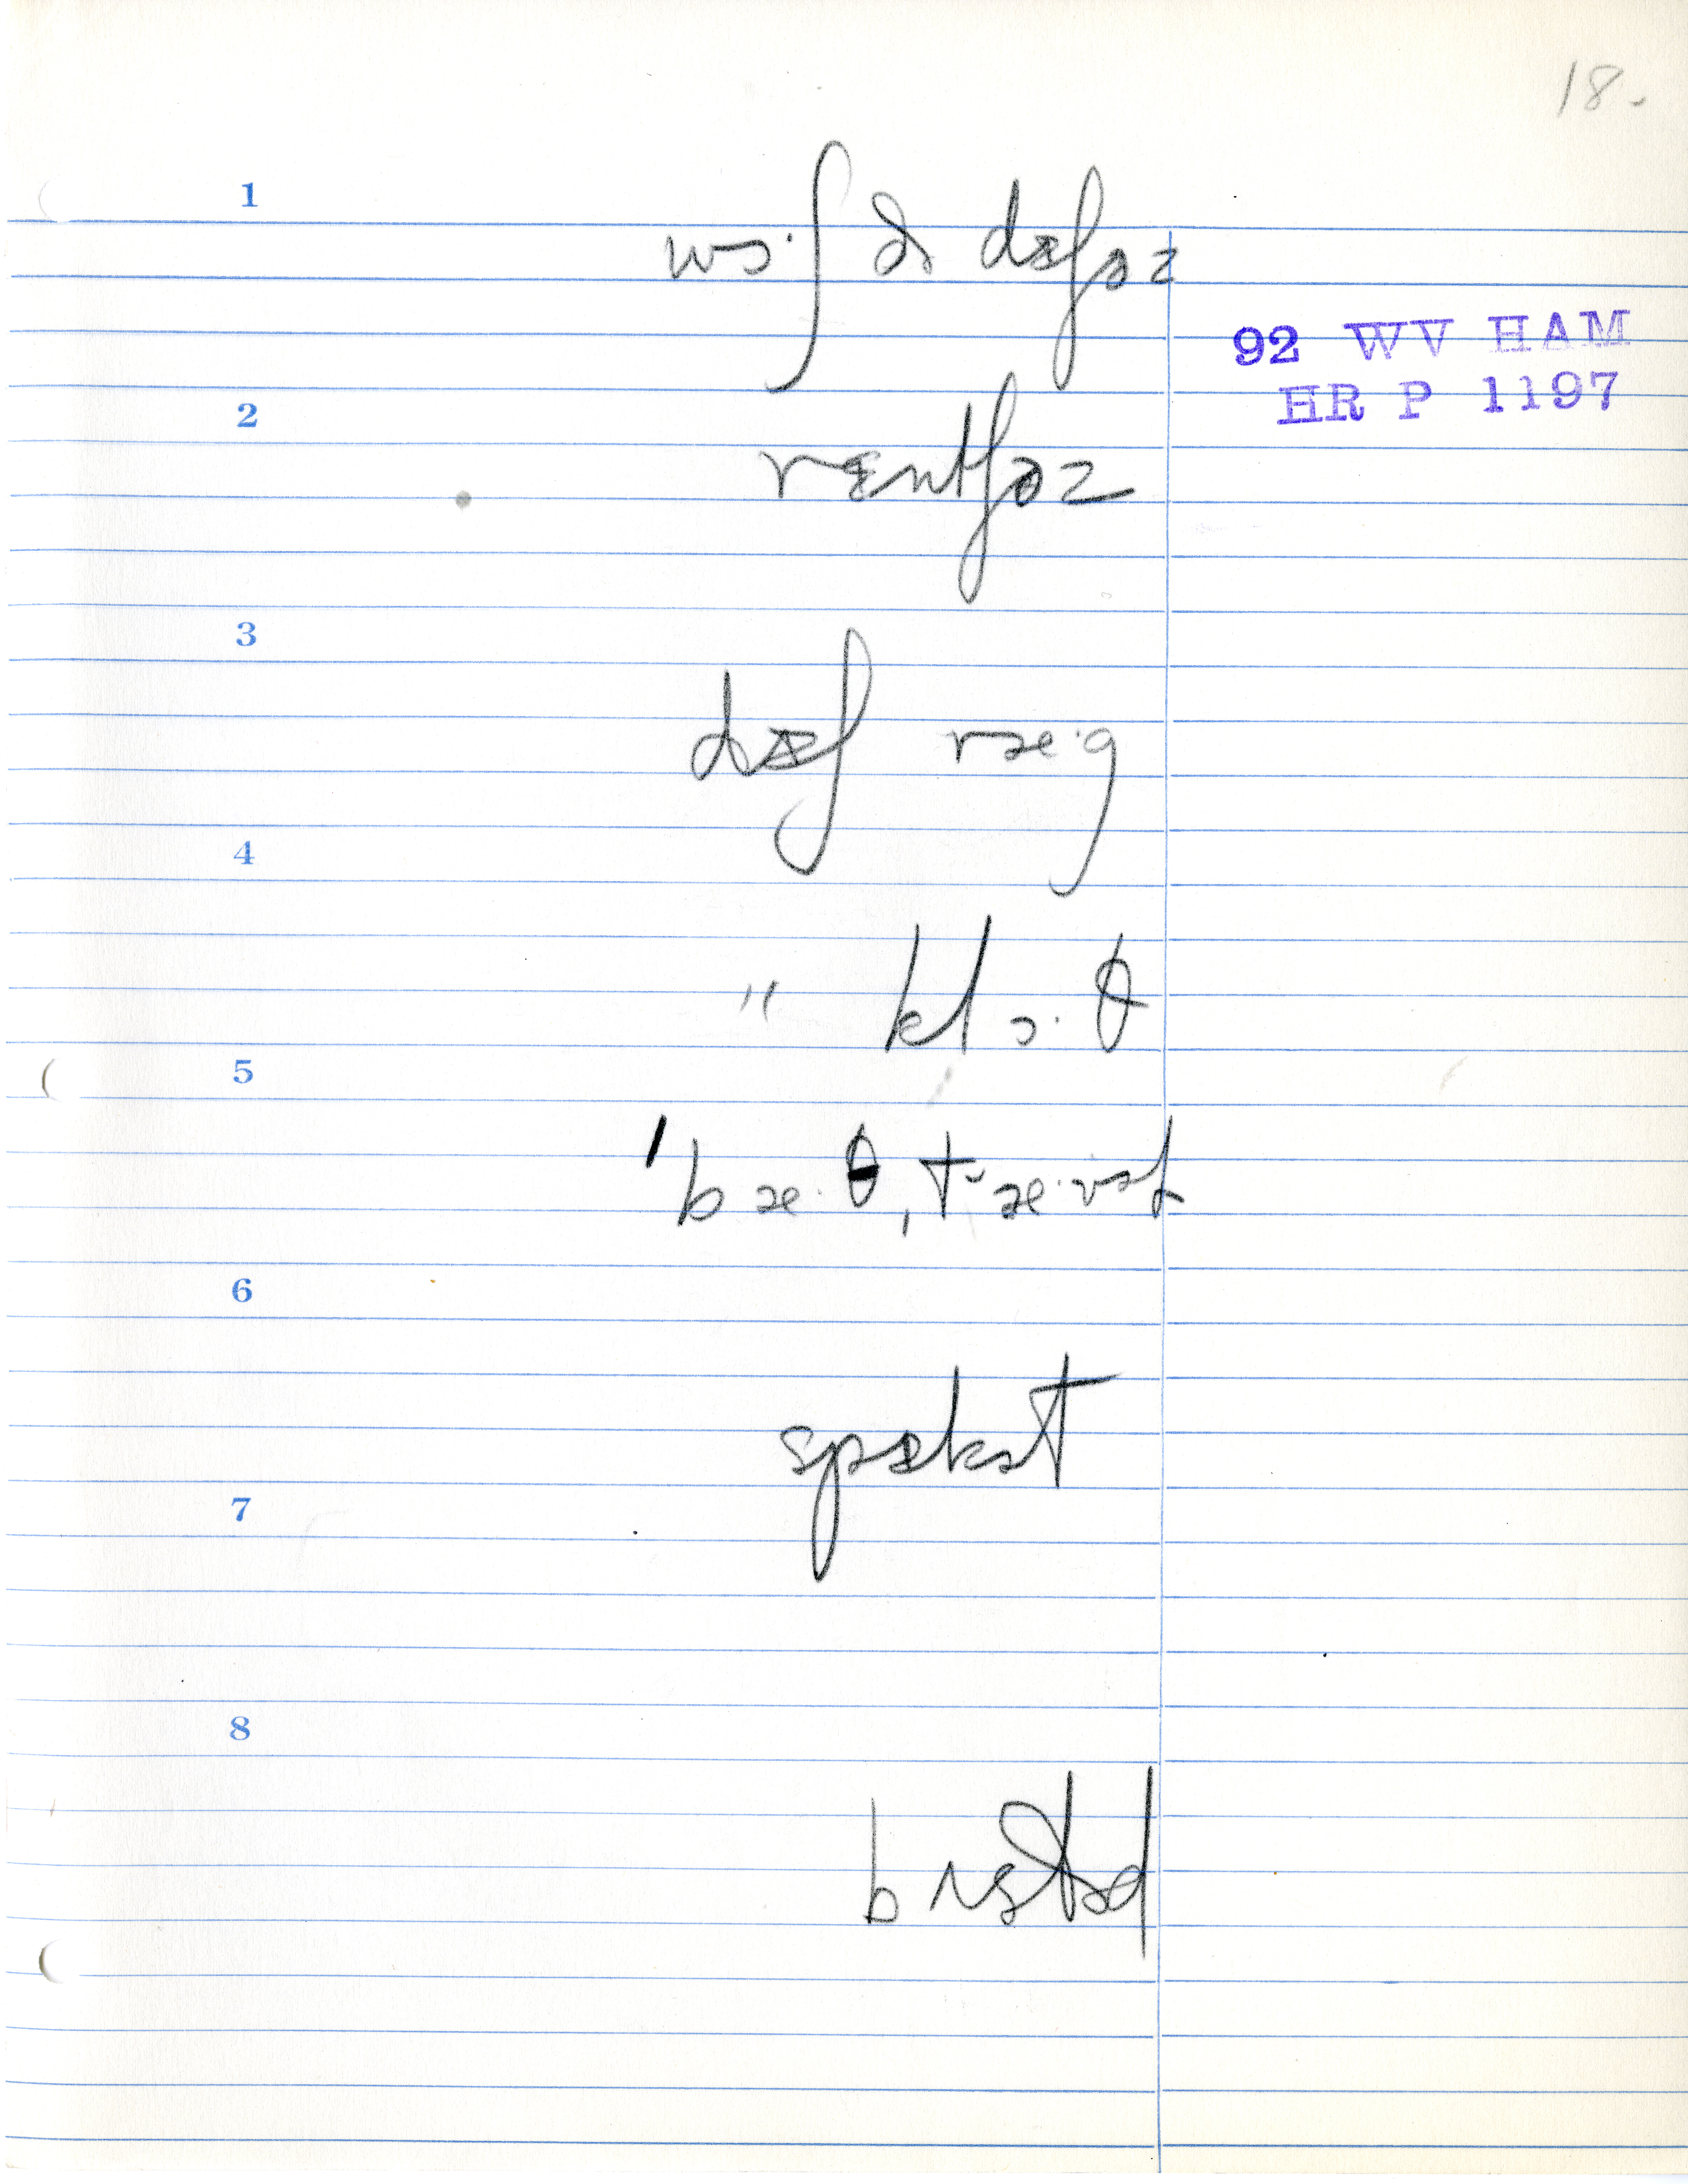 18.
1
wɔ·ʃ ðə dɪʃəz
92 WV HAM
HR P 1197
2
rɛntʃəz
3
dɪʃ ræ·g
4
" klɔ·θ
5
ˈbæ·θˌtʻæ·vəl
6
spɪkət
7
8
bʌstəd